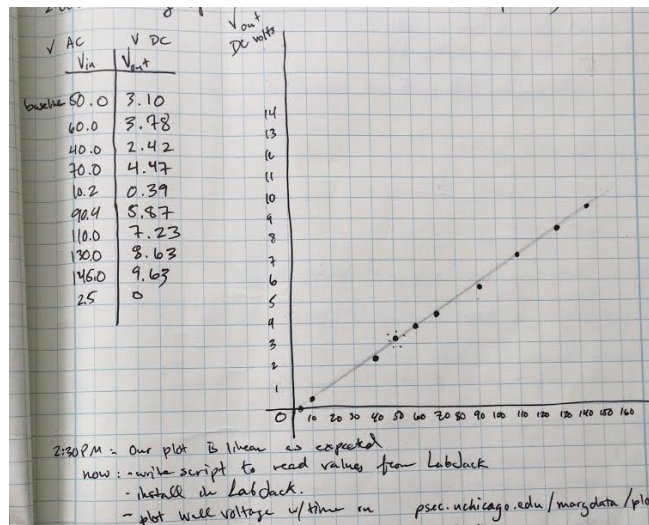 V out
DC volts
V AC V DC
Vin Vout
baseline 50.0 3.10
60.0 3.78
40.0 2.42
70.0 4.47
10.2 0.39
90.4 5.87
110.0 7.23
130.0 8.63
145.0 9.63
2.5 0
14
13
12
11
10
9
8
7
6
5
4
3
2
1
0 10 20 30 40 50 60 70 80 90 100 110 120 130 140 150 160
2:30PM - Our plot is linear as expected
now: - write script to read values from LabJack
- install in LabJack.
- plot wall voltage w/time on psec.uchicago.edu/margdata/plo